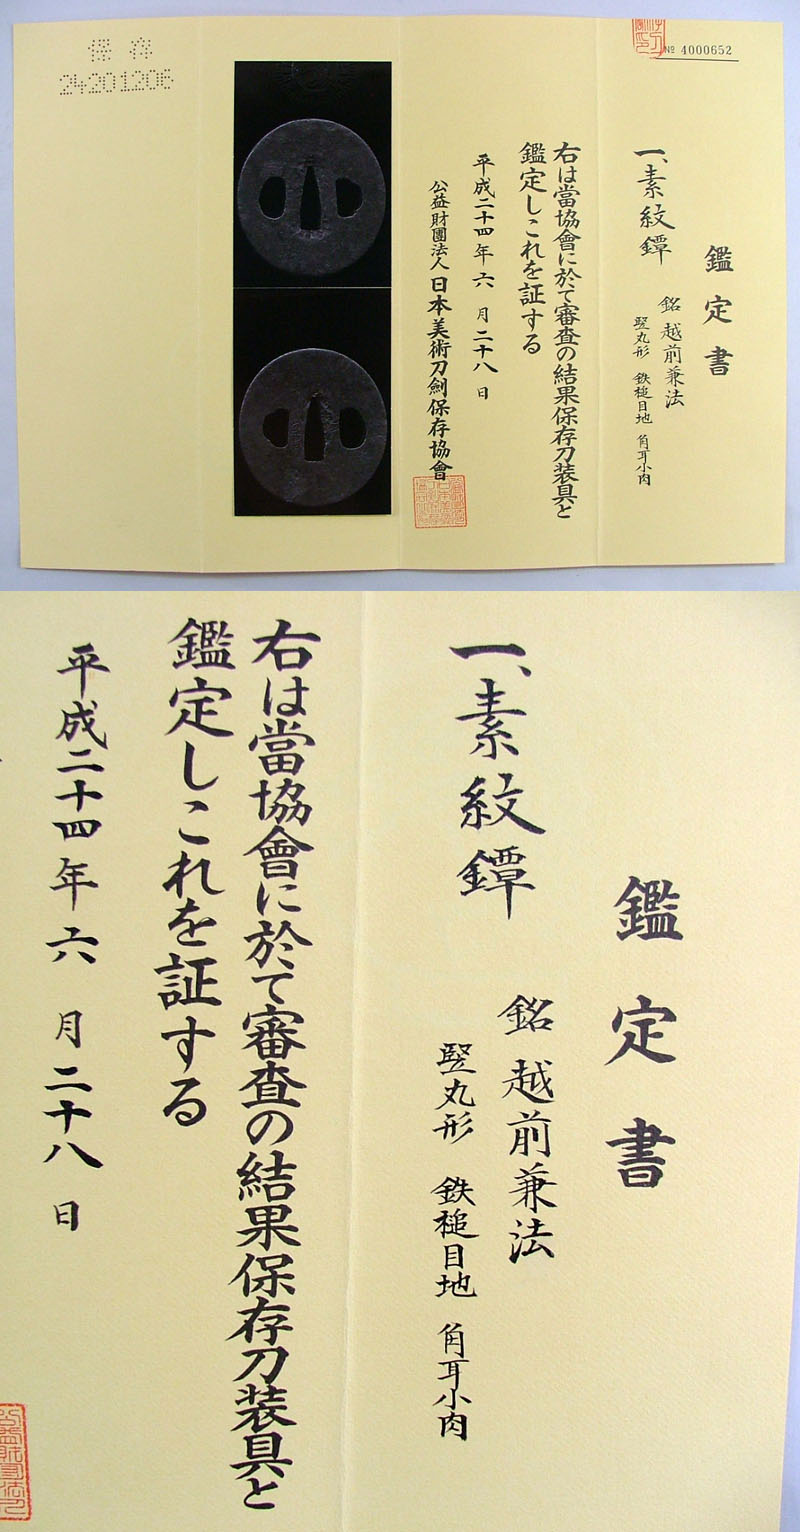 № 4000652
鑑定書
一、素紋鐔
銘 越前兼法
竪丸形 鉄槌目地 角耳小肉
右は當協會に於て審査の結果保存刀装具と
鑑定しこれを証する
平成二十四年六月二十八日
公益財團法人 日本美術刀劍保存協會
保存
24201206
鑑定書
一、素紋鐔
銘 越前兼法
竪丸形 鉄槌目地 角耳小肉
右は當協會に於て審査の結果保存刀装具と
鑑定しこれを証する
平成二十四年六月二十八日